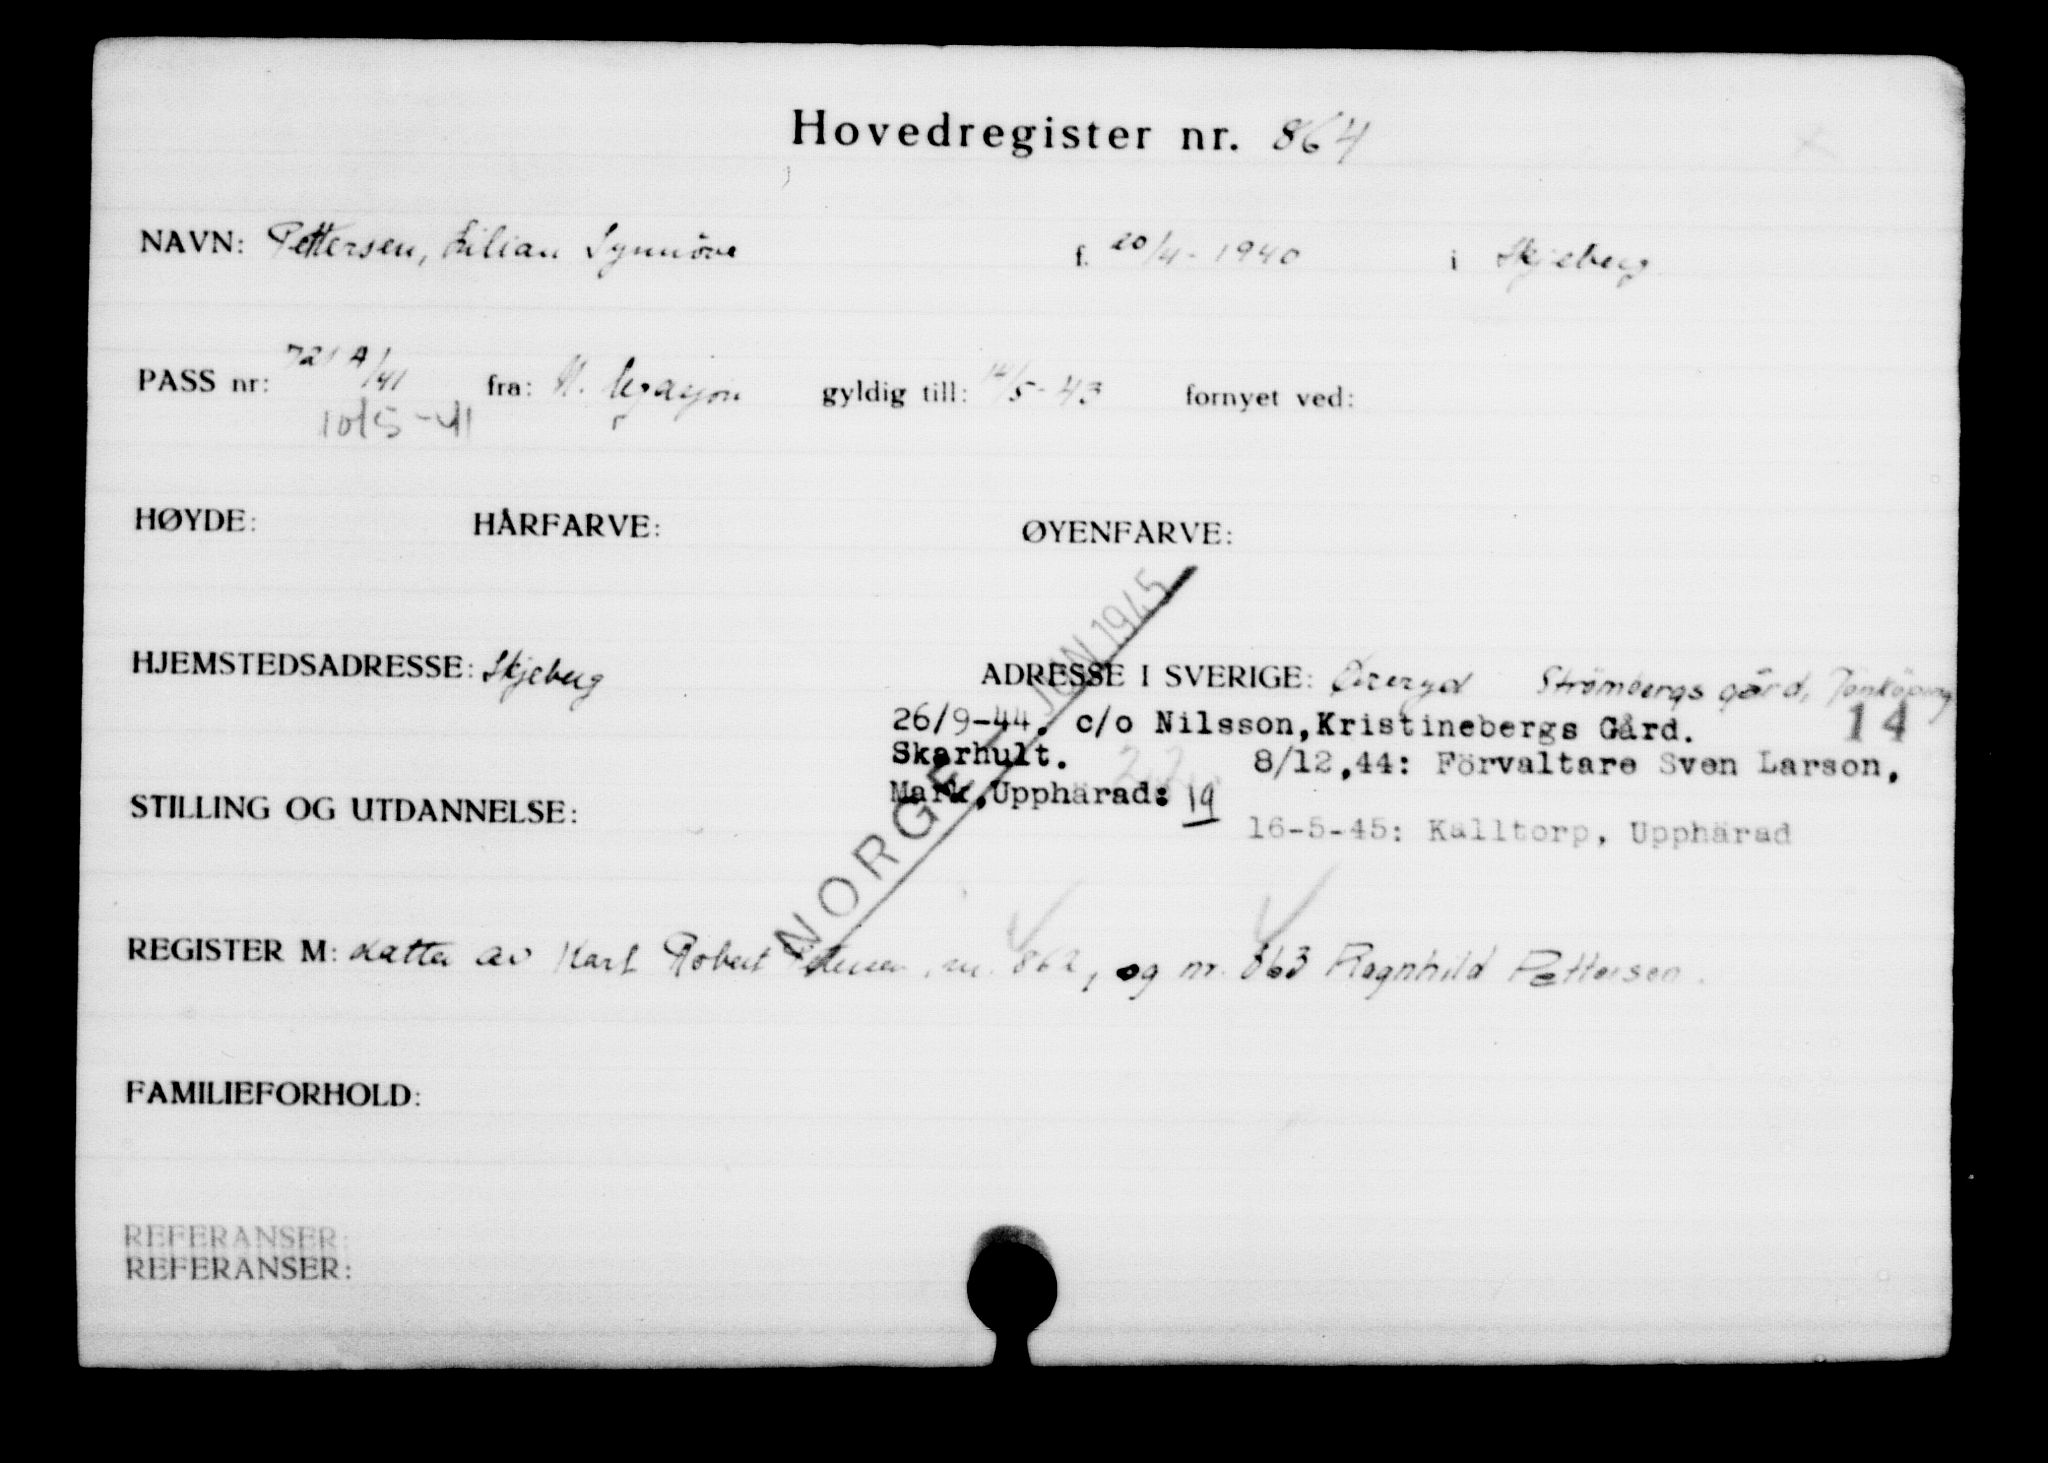 Hovedregister nr. 864
NAVN: Pettersen, Lilian Synnöve f. 20/4-1940 i Skjeberg
PASS nr: 721 A/41 fra: N. legasjon gyldig till: 14/5-43 fornyet ved:
10/5-41
HØYDE: HÅRFARVE: ØYENFARVE:
HJEMSTEDSADRESSE: Skjeberg ADRESSE I SVERIGE: Öreryd Strömbergs gård, Jönköping
26/9-44. c/o Nilsson,Kristinebergs Gård. 14
Skarhult. 8/12,44: Förvaltare Sven Larson,
Mark,Upphärad: 19
STILLING OG UTDANNELSE:
16-5-45: Kalltorp, Upphärad
NORGE JUN 1945
REGISTER M: datter av Karl Robert Pettersen, nr. 862, og nr. 863 Ragnhild Pettersen.
FAMILIEFORHOLD:
REFERANSER:
REFERANSER: